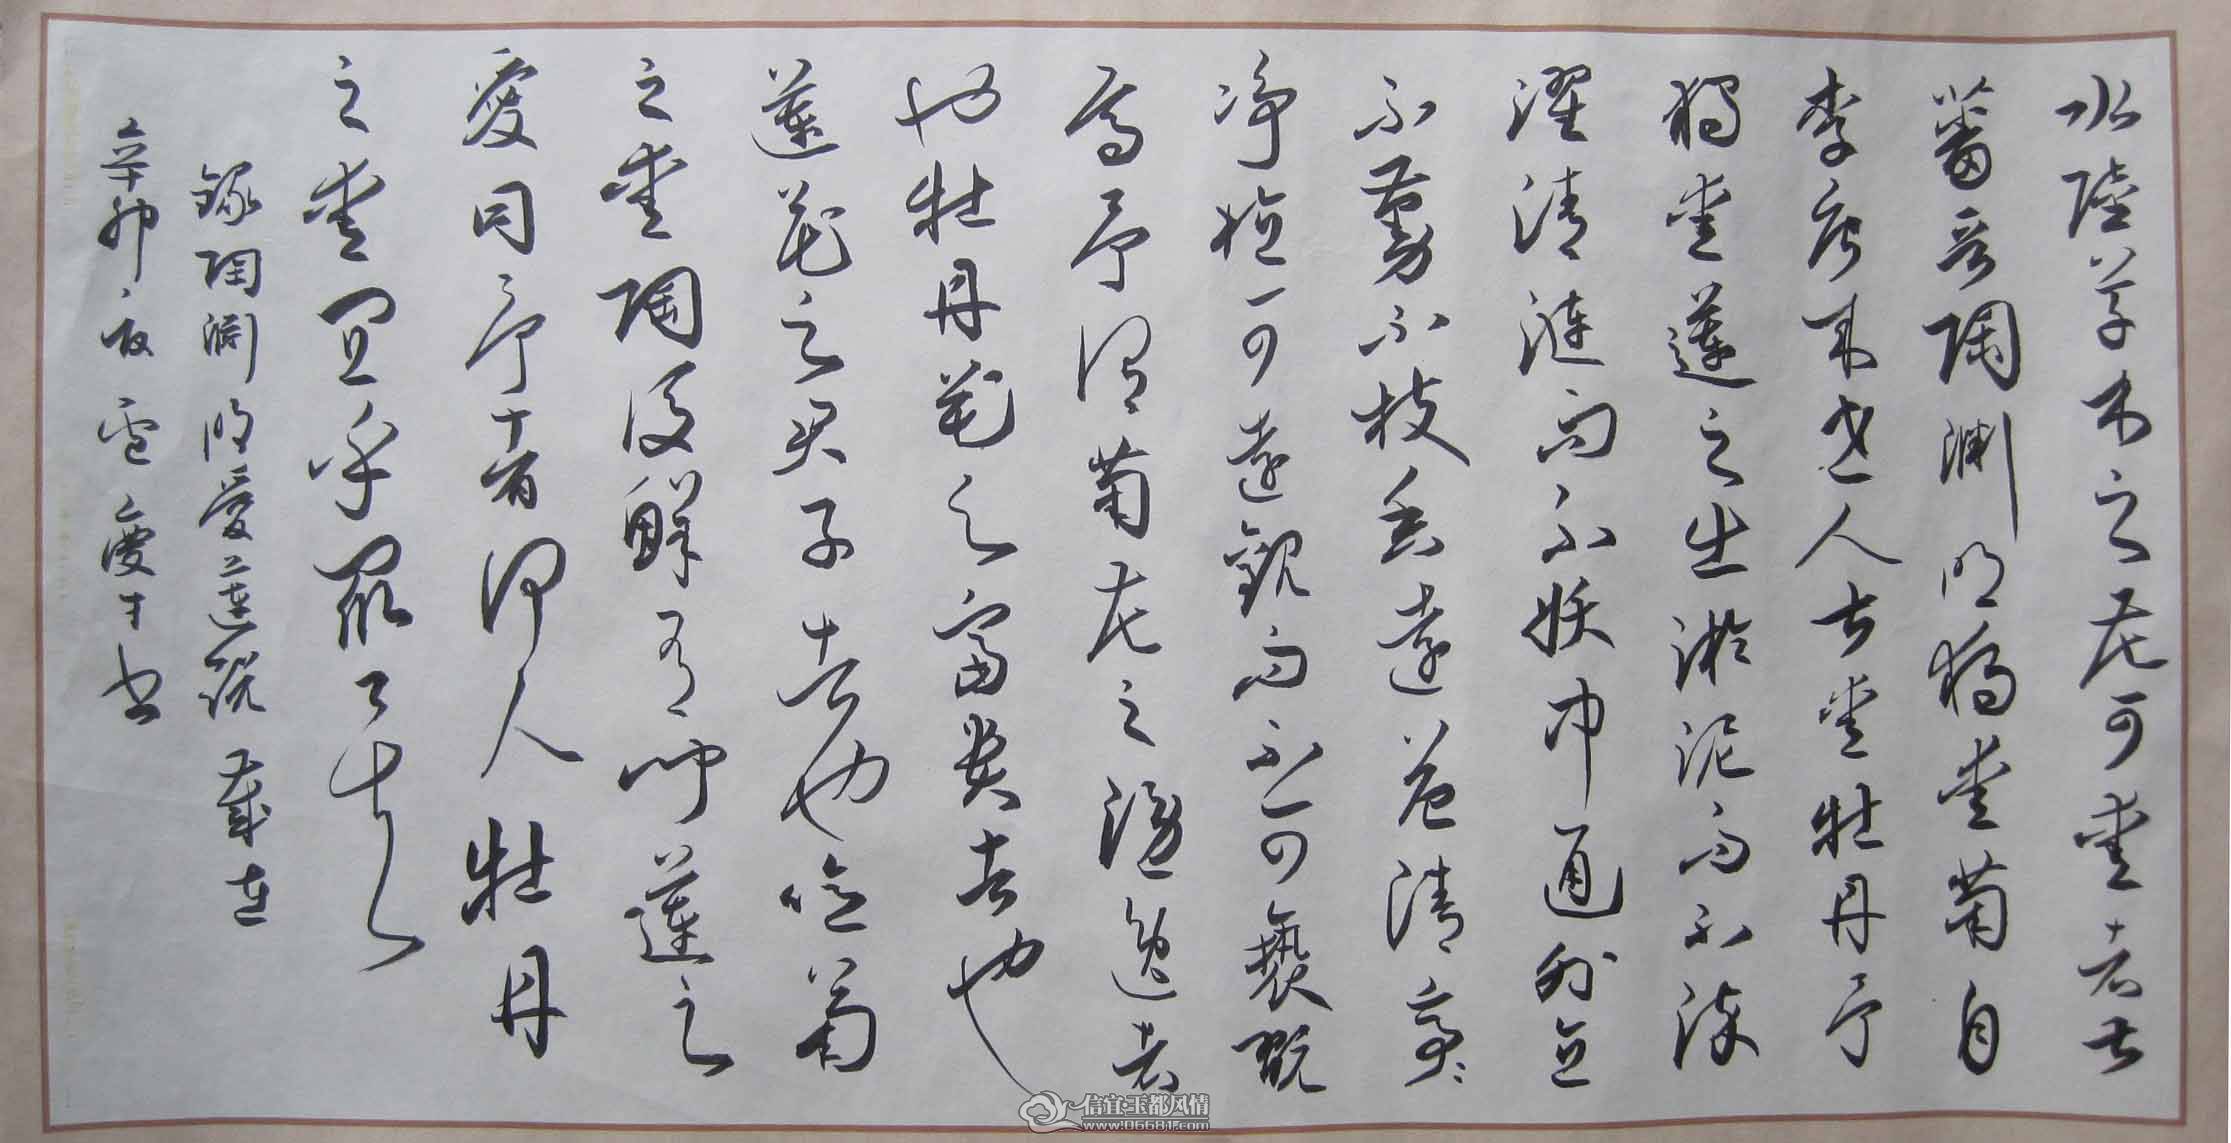 水陸草木之花可愛者甚
蕃晉陶淵明獨愛菊自
李唐来世人甚愛牡丹予
獨愛蓮之出淤泥而不染
濯清漣而不妖中通外直
不蔓不枝香遠益清亭〻
净植可遠觀而不可褻翫
焉予谓菊花之隱逸者
也牡丹花之富贵者也
蓮花之君子者也噫菊
之愛陶後鮮有闻蓮之
愛同予者何人牡丹
之愛宜乎眾矣
録陶淵明愛蓮説 歲在
辛卯 书
信宜·玉都风情
www.06681.com